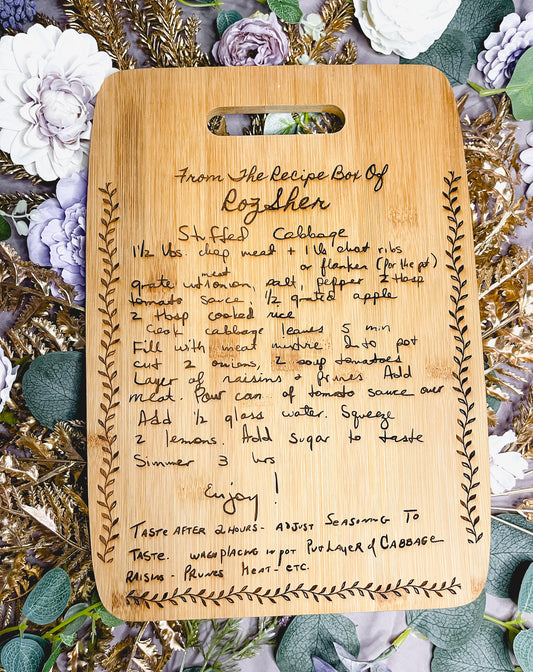 From The Recipe Box Of
Roz Sher
Stuffed Cabbage
1 1/2 lbs. chop meat + 1 lb short ribs
or flanken (for the pot)
grate meat w/ onion, salt, pepper 2 tbsp
tomato sauce, 1/2 grated apple
2 tbsp cooked rice
Cook cabbage leaves 5 min
Fill with meat mixture Into pot
cut 2 onions, 2 soup tomatoes
Layer of raisins + prunes Add
meat. Pour can of tomato sauce over
Add 1/2 glass water. Squeeze
2 lemons. Add sugar to taste
Simmer 3 hrs
Enjoy!
TASTE AFTER 2 HOURS - ADJUST SEASONING TO
TASTE. WHEN PLACING IN POT PUT LAYER of CABBAGE
RAISINS - PRUNES MEAT - ETC.